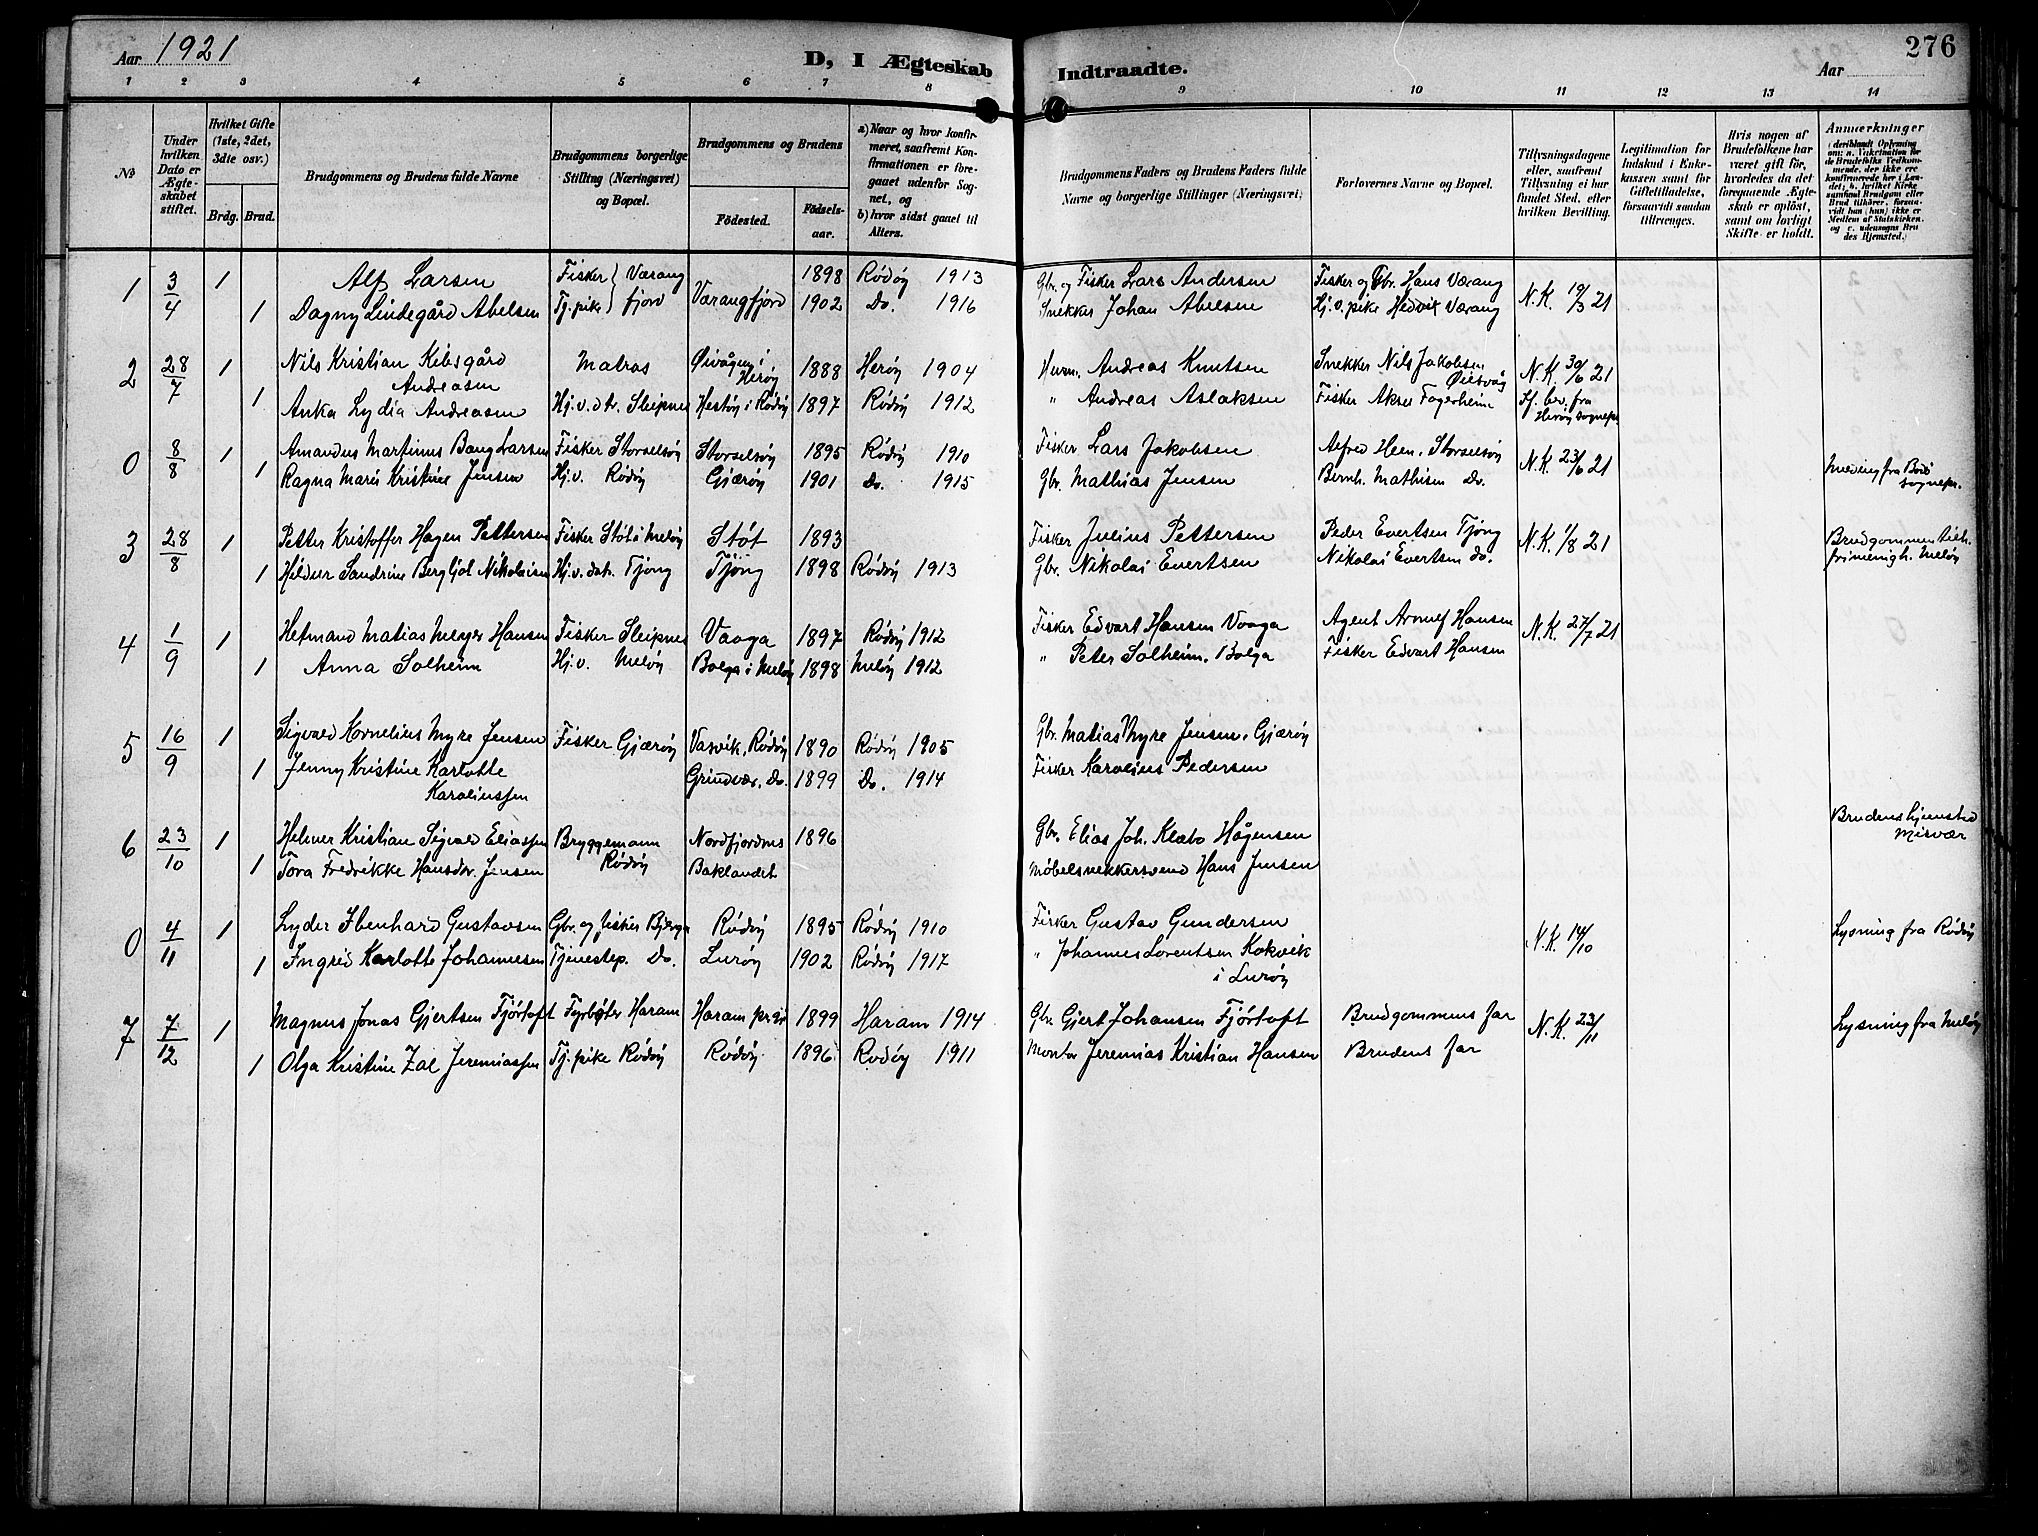 Aar 1921
D, I Ægteskab Indtraadte.
Aar
276
1 2 3 4 5 6 7 8 9 10 11 12 13 14
No
Under hvilken Dato er Ægteskabet stiftet.
Hvilket Gifte (1ste, 2det, 3dte osv.)
Brdg. Brud.
Brudgommens og Brudens fulde Navne
Brudgommens borgerlige Stilling (Næringsvei) og Bopæl.
Brudgommens og Brudens
Födested. Födselsaar.
a) Naar og hvor konfirmeret, saafremt Konfirmationen er foregaaet udenfor Sognet, og
b) hvor sidst gaaet til Alters.
Brudgommens Faders og Brudens Faders fulde Navne og borgerlige Stillinger (Næringsvei)
Forlovernes Navne og Bopæl.
Tillysningsdagene eller, saafremt Tillysning ei har fundet Sted, efter hvilken Bevilling.
Legitimation for Indskud i Enkekassen samt for Giftetilladelse, forsaavidt saadan tiltrænges.
Hvis nogen af Brudefolkene har været gift för, hvorledes da det foregaaende Ægteskab er oplöst, samt om lovligt Skifte er holdt.
Anmærkninger (deriblandt Oplysning om: a. Vakcination for de Brudefolks Vedkommende, der ikke ere konfirmerede her i Landet; b. hvilket Kirkesamfund Brudgom eller Brud tilhörer, forsaavidt han (hun) ikke er Medlem af Statskirken, og c. udensogns Brudes Hjemsted.)
1 3/4 1 Alf Larsen Fisker } Værang 1898 Rødøy 1913 Gbr. og Fisker Lars Andersen Fisker og Gbr. Hans Værang N.K. 19/3 21
1 Dagny Lindegård Abelsen Tj. pike } fjord Værangfjord 1902 Do. 1916 Snekker Johan Abelsen Hj.v. pike Hedvik Værang
2 28/7 1 Nils Kristian Kibsgård Andreasen Matros Øivågen i Herøy 1888 Herøy 1904 Husm. Andreas Knutsen Snekker Nils Jakobsen Øisvåg N.K. 30/6 21
1 Anka Lydia Andreasen Hj.v. dtr. Sleipnes Hestøy i Rødøy 1897 Rødøy 1912 " Andreas Aslaksen Fisker Aksel Fagerheim Fl. bev. fra Herøy sognepr.
0 8/8 1 Amandus Martinus Bang Larsen Fisker Storselsøy Storselsøy 1895 Rødøy 1910 Fisker Lars Jakobsen Alfred Heen, Storselsøy N.K. 23/6 21
1 Ragna Marie Kristine Jensen Hj.v. Rødøy Gjærøy 1901 Do. 1915 Gbr. Mathias Jensen Bernh. Mathisen Do. fra Bodø sognepr.
3 28/8 1 Petter Kristoffer Hagen Pettersen Fisker Støt i Meløy Støt 1893 Fisker Julius Pettersen Peder Evertsen Tjong N.K. 1/8 21 Brudgommen tilh. frimenigh. Meløy
1 Hildur Sandrine Bergljot Nikolaisen Hj.v. dat. Tjong Tjong 1898 Rødøy 1913 Gbr. Nikolai Evertsen Nikolai Evertsen do.
4 1/9 1 Hetmand Matias Meyer Hansen Fisker Sleipnes Vaaga 1897 Rødøy 1912 Fisker Edvart Hansen Vaaga Agent Arnulf Hansen N.K. 27/7 21
1 Anna Solheim Hj.v. Meløy Bolga i Meløy 1898 Meløy 1912 " Peter Solheim, Bolga Fisker Edvart Hansen
5 16/9 1 Sigvald Kornelius Myre Jensen Fisker Gjærøy Vasvik, Rødøy 1890 Rødøy 1905 Gbr. Matias Myre Jensen, Gjærøy
1 Jenny Kristine Karlotte Karoliussen Grindvær, Do. 1899 Do. 1914 Fisker Karolius Pedersen
6 23/10 1 Helmer Kristian Sigvald Eliassen Bryggemann Rødøy Nordfjordnes 1896 Gbr. Elias Joh. Klæbo Hågensen Brudens hjemsted Misvær
1 Tora Fredrikke Hansdtr. Jensen Baklandet Møbelsnekkersvend Hans Jensen
0 4/11 1 Lyder Ibenhard Gustavsen Gbr. og fisker Bjerga Rødøy 1895 Rødøy 1910 Fisker Gustav Gundersen N.K. 14/10 Lysning fra Rødøy
1 Ingrid Karlotte Johannesen Tjenestep. Do. Lurøy 1902 Rødøy 1917 " Johannes Lorentsen Kokvik i Lurøy
7 7/12 1 Magnus Jonas Gjertsen Fjørtoft Fyrbøter Haram Haram pr.gj. 1899 Haram 1914 Gbr. Gjert Johansen Fjørtoft Brudgommens far N.K. 23/11 Lysning fra Meløy
1 Olga Kristine Zal Jeremiassen Tj. pike Rødøy Rødøy 1896 Rødøy 1911 Montør Jeremias Kristian Hansen Brudens far